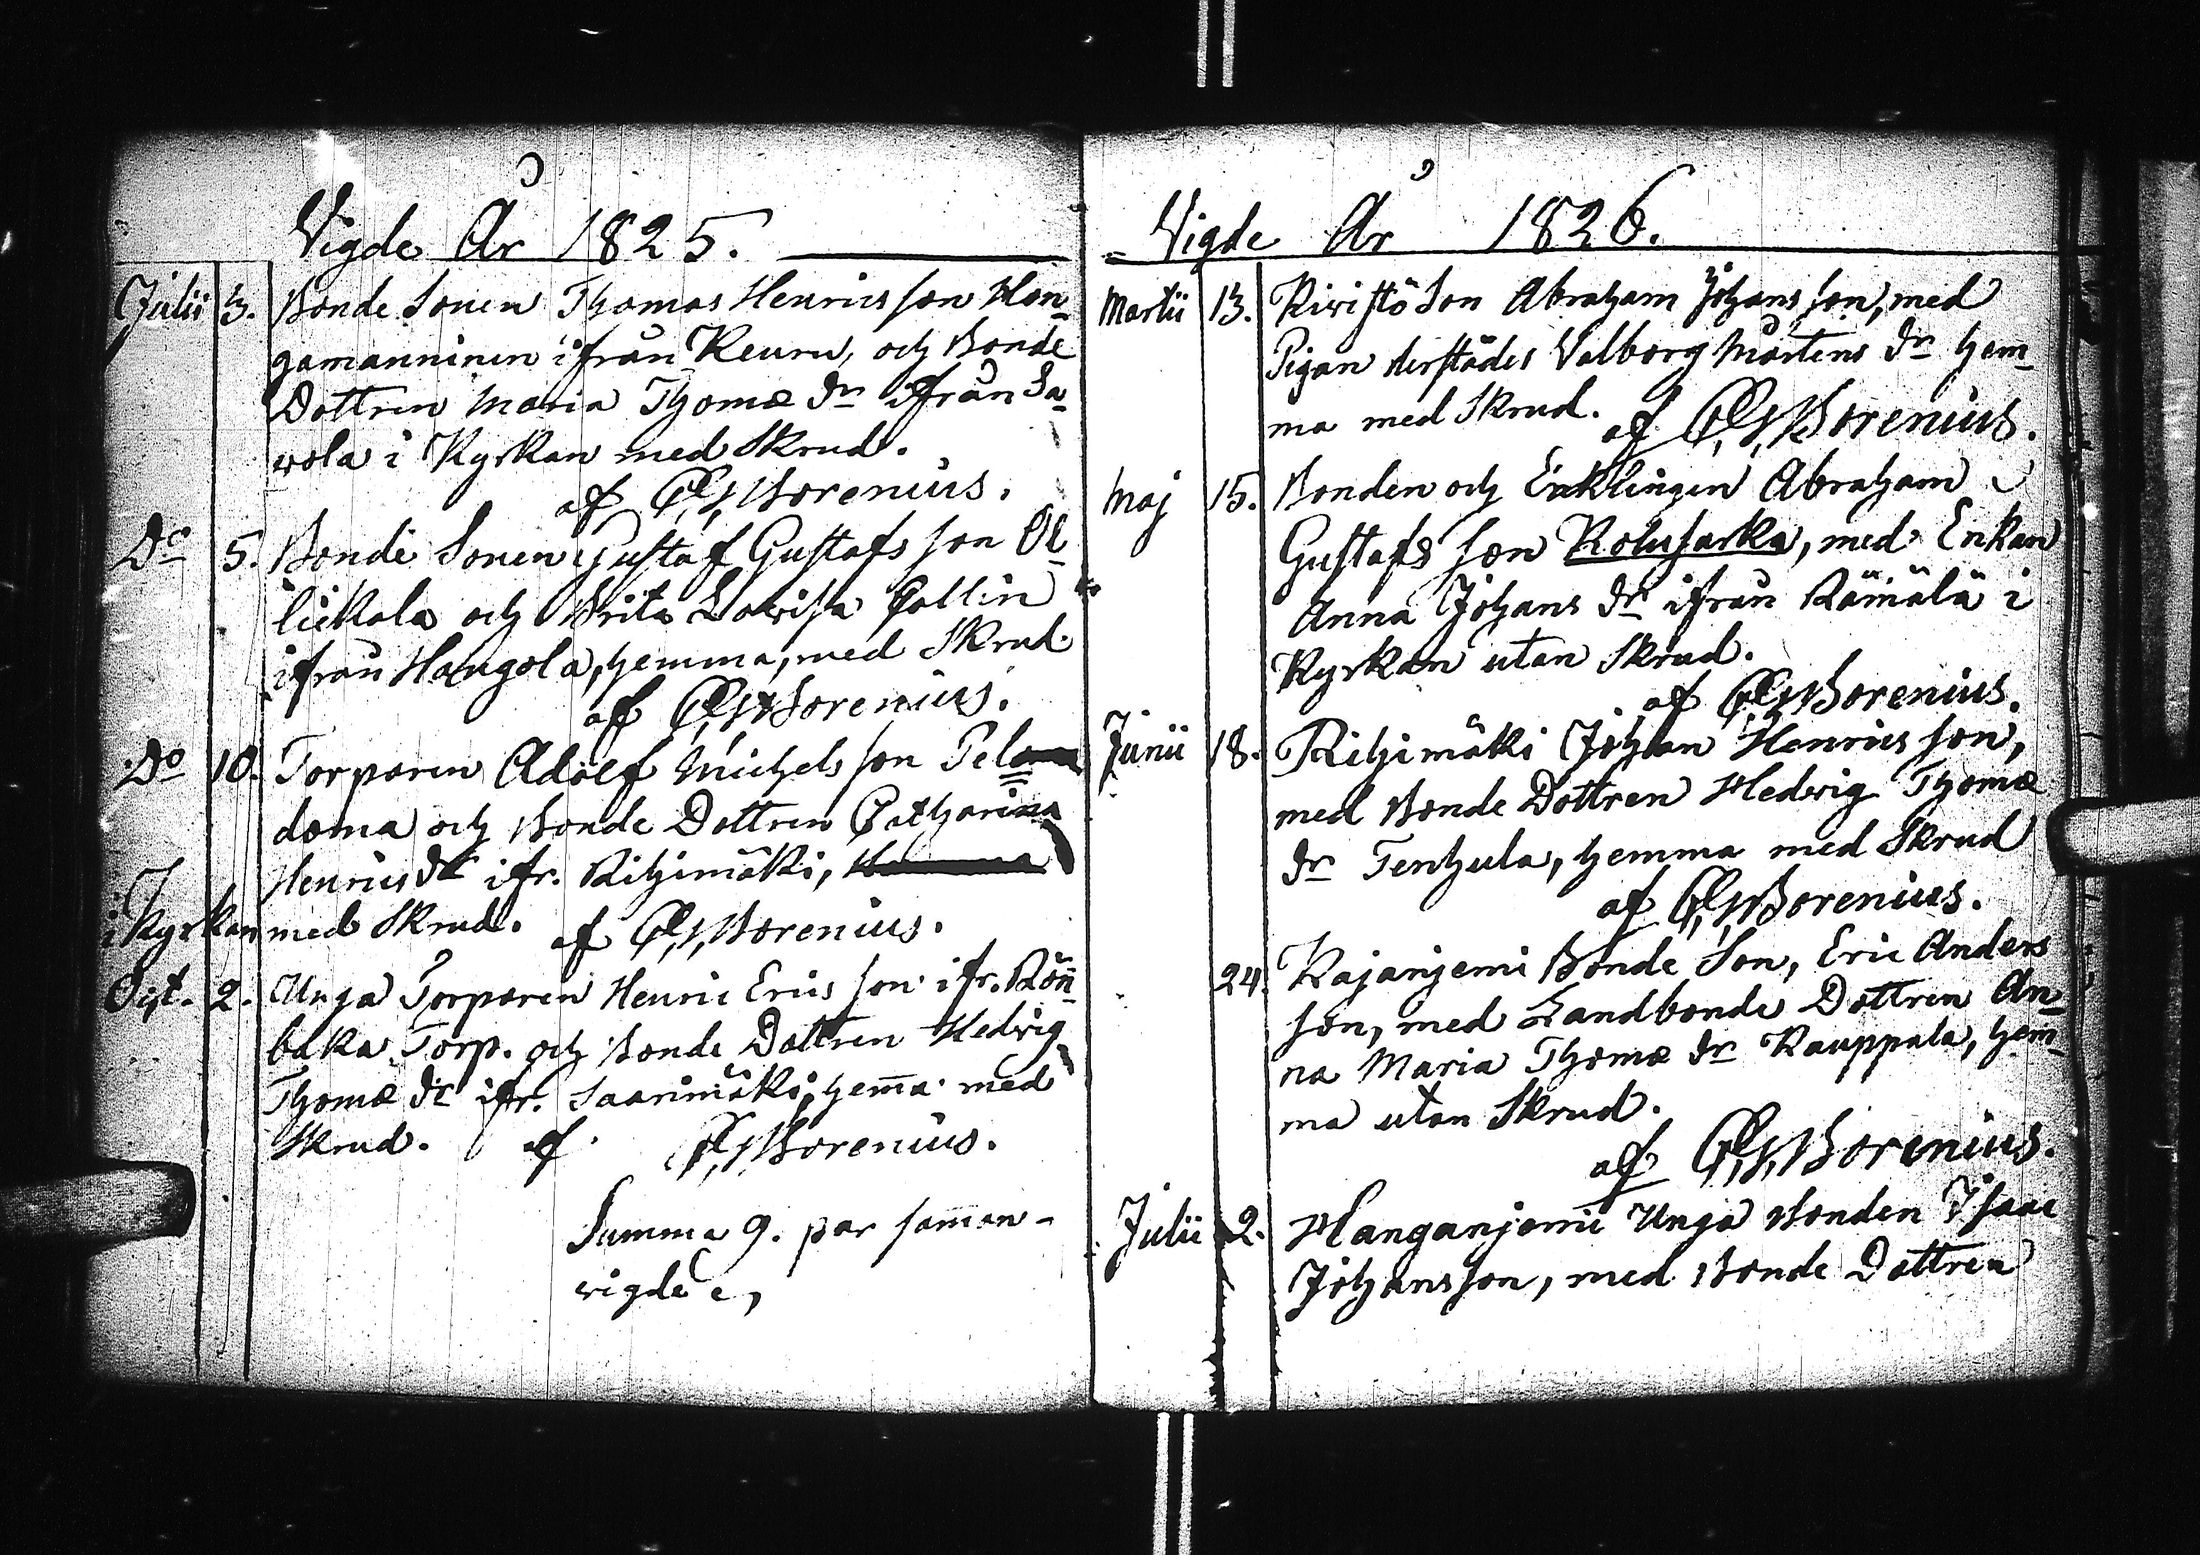 Vigde År 1825.
Julii 3. Bonde Sonen Thomas Henricsson Mon-
gamanninen ifrån Keuru, och Bonde
Dottren Maria Thomæ dr ifrån Sa-
wola i Kyrkan med Skrud.
af C. G. W. Borenius.
Do 5. Bonde Sonen Gustaf Gustafs son Ol-
likala och Brita Lowisa Collin
ifrån Hangola, hemma, med Skrud
af C. G. W. Borenius.
Do 10. Torparen Adolf Michels son Pel
doma och Bonde Dottren Catharina
Henrics dr ifr. Rihimäki,
i Kyrkan med Skrud. af C. G. W. Borenius.
Oct. 2. Unga Torparen Henric Erics son ifr. Rön-
baka Torp. och Bonde Dottren Hedvig
Thomæ dr ifr. Saarimäki, hem̄a med
Skrud. af C. G. W. Borenius.
Summa 9. par samman-
vigde
Vigde År 1826.
Martii 13. Kiwistö Son Abraham Johans son, med
Pigan derstädes Valborg Mårtens dr hem-
ma med Skrud. af C. G. W. Borenius.
Maj 15. Bonden och Enklingen Abraham
Gustafs son Kolusarka, med Enkan
Anna Johans dr ifrån Rämälä i
Kyrkan utan Skrud.
af C. G. W. Borenius.
Junii 18. Rihimäki Johan Henrics son,
med Bonde Dottren Hedvig Thomæ
dr Tenhula, hemma med Skrud
af C. G. W. Borenius.
24. Kajanjemi Bonde Son, Eric Anders
son, med Landbonde Dottren An-
na Maria Thomæ dr Kauppala, hem-
ma utan Skrud.
af C. G. W. Borenius.
Julii 2. Hanganjemi Unga Bonden Isaac
Johansson, med Bonde Dottren